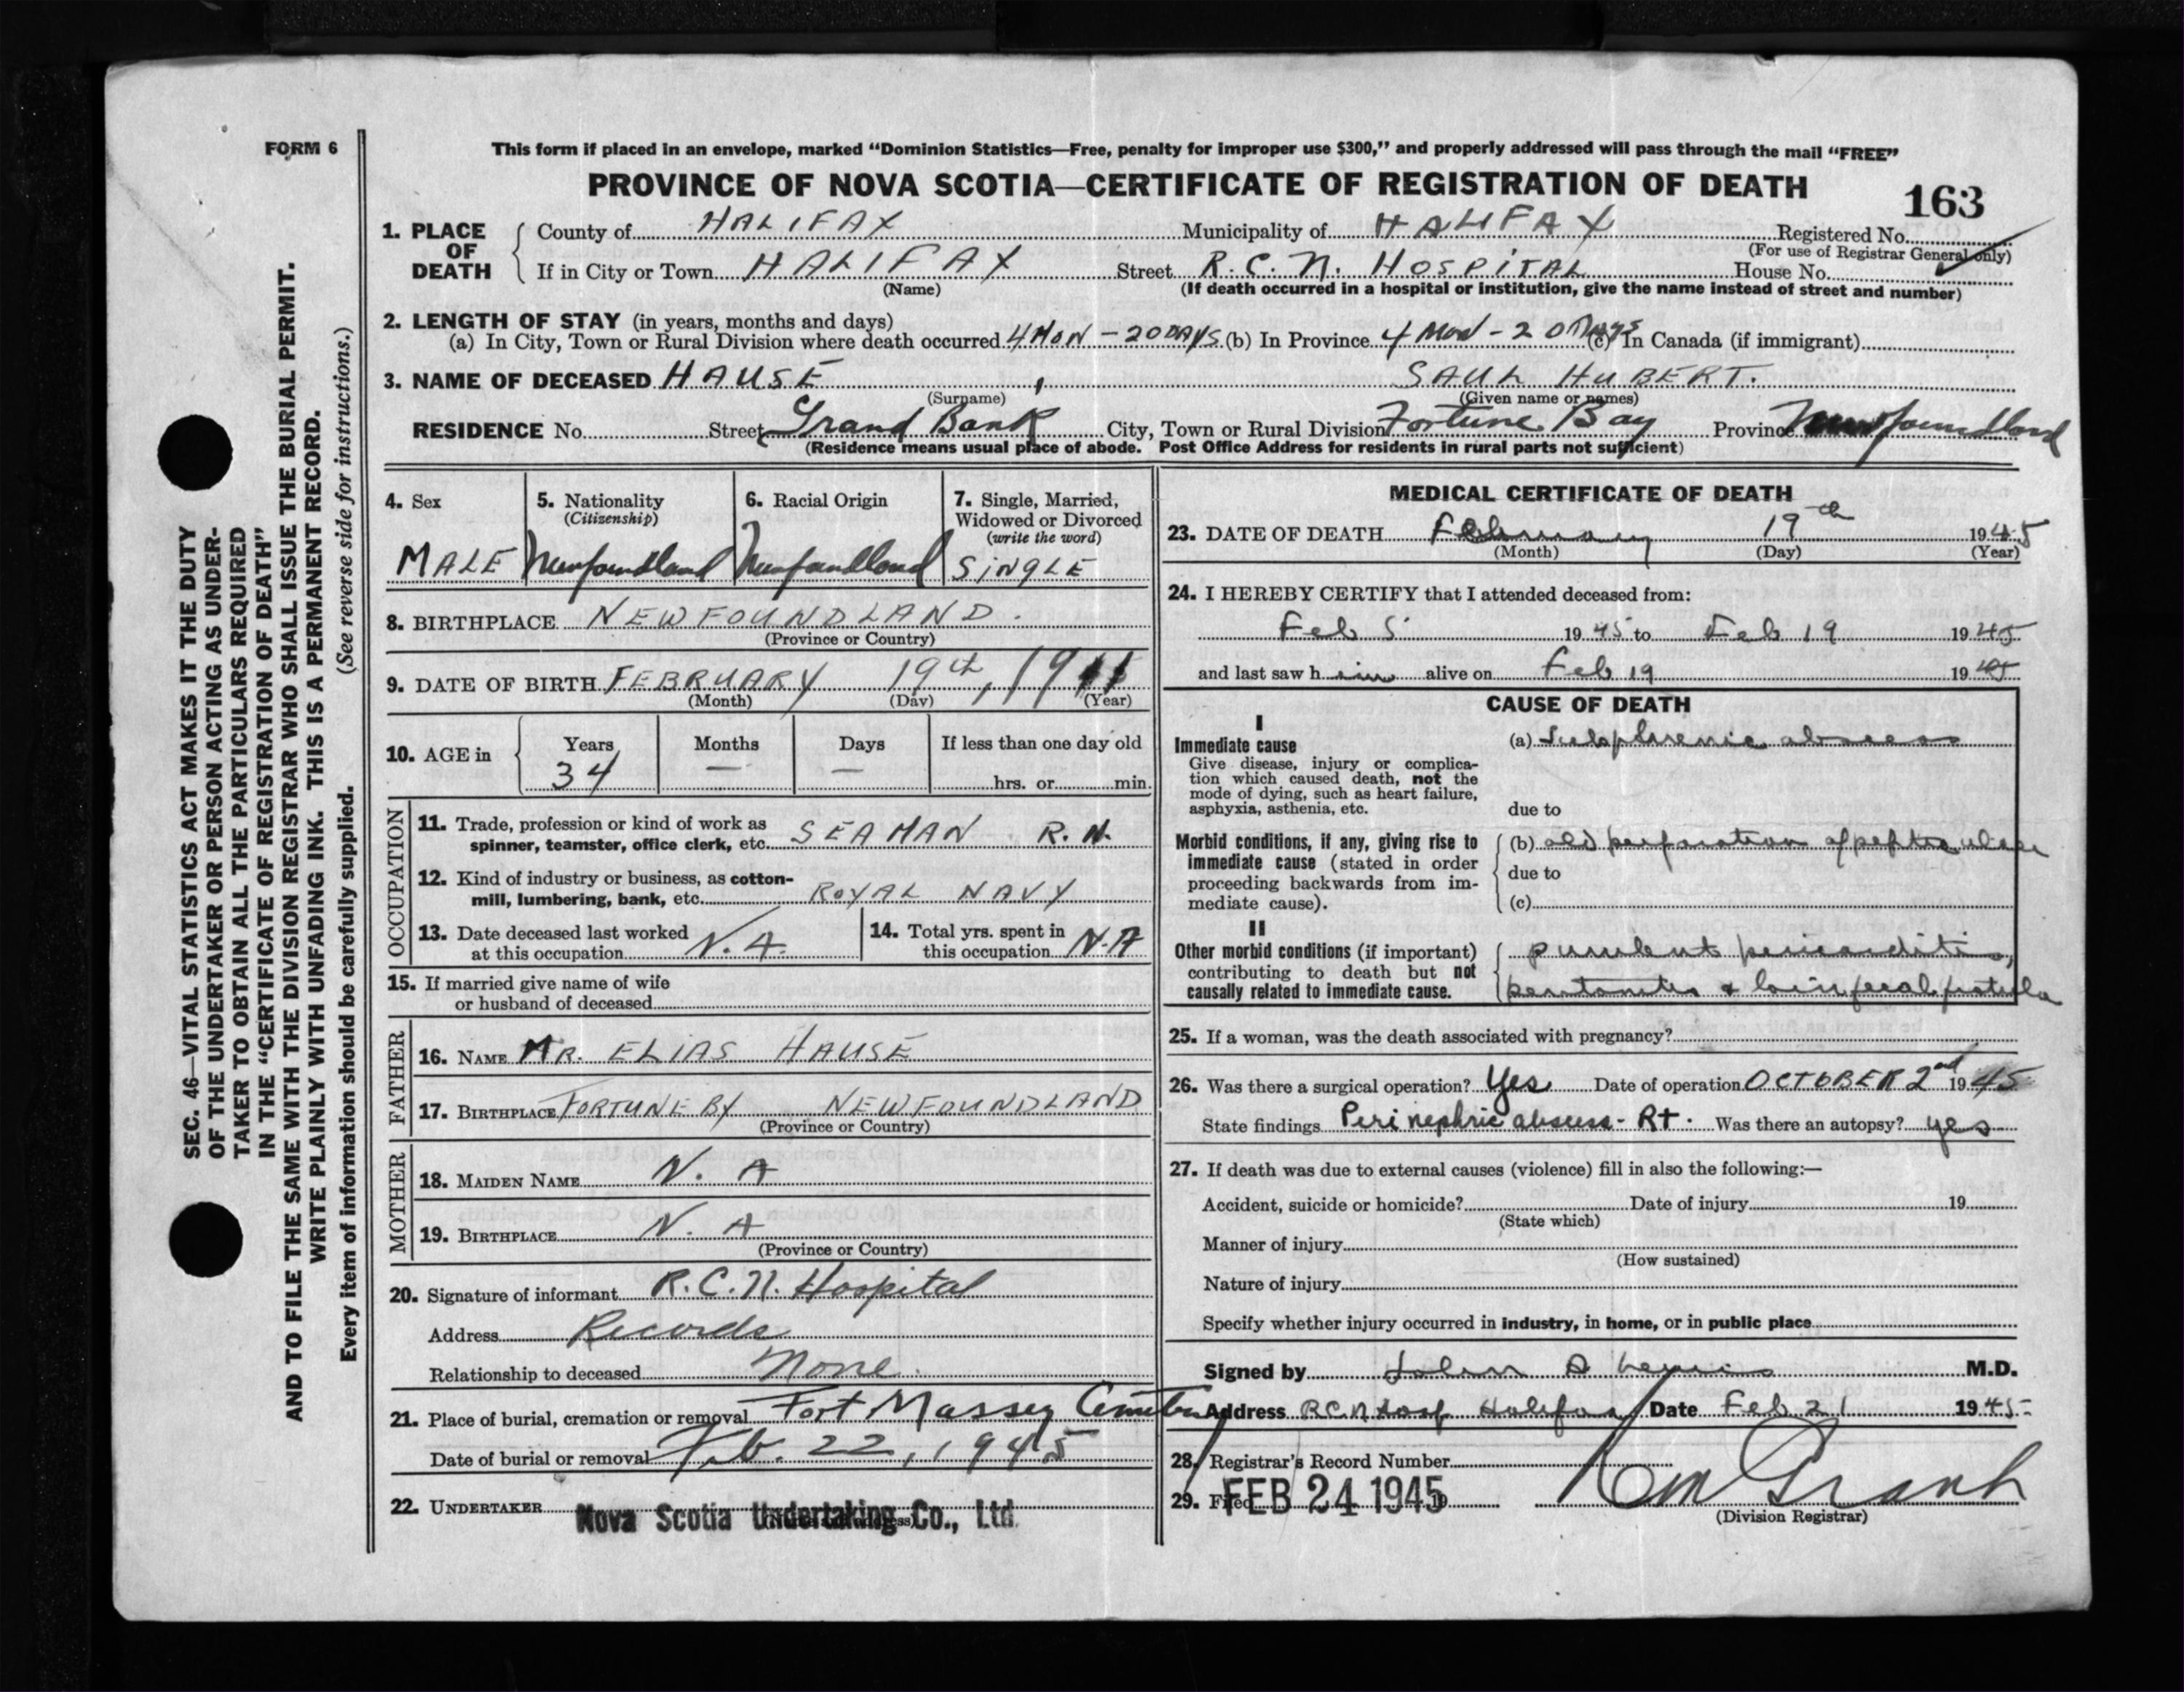 FORM 6
This form if placed in an envelope, marked “Dominion Statistics—Free, penalty for improper use $300,” and properly addressed will pass through the mail “FREE”
PROVINCE OF NOVA SCOTIA—CERTIFICATE OF REGISTRATION OF DEATH
163
1. PLACE OF DEATH
County of HALIFAX Municipality of HALIFAX Registered No.
(For use of Registrar General only)
If in City or Town HALIFAX Street R.C.N. HOSPITAL House No.
(Name) (If death occurred in a hospital or institution, give the name instead of street and number)
2. LENGTH OF STAY (in years, months and days)
(a) In City, Town or Rural Division where death occurred 4 MON - 20 DAYS (b) In Province 4 MON - 20 DAYS (c) In Canada (if immigrant)
3. NAME OF DECEASED HAUSE, SAUL HUBERT.
(Surname) (Given name or names)
RESIDENCE No. Street Grand Bank City, Town or Rural Division Fortune Bay Province Newfoundland
(Residence means usual place of abode. Post Office Address for residents in rural parts not sufficient)
4. Sex
MALE
5. Nationality
(Citizenship)
Newfoundland
6. Racial Origin
Newfoundland
7. Single, Married,
Widowed or Divorced
(write the word)
SINGLE
8. BIRTHPLACE NEWFOUNDLAND.
(Province or Country)
9. DATE OF BIRTH FEBRUARY 19th, 1911
(Month) (Day) (Year)
10. AGE in
Years Months Days If less than one day old
34 — — hrs. or min.
OCCUPATION
11. Trade, profession or kind of work as
spinner, teamster, office clerk, etc. SEAMAN R.N.
12. Kind of industry or business, as cotton-
mill, lumbering, bank, etc. ROYAL NAVY
13. Date deceased last worked
at this occupation N.A.
14. Total yrs. spent in
this occupation N.A
15. If married give name of wife
or husband of deceased
FATHER
16. NAME MR. ELIAS HAUSE
17. BIRTHPLACE FORTUNE BY NEWFOUNDLAND
(Province or Country)
MOTHER
18. MAIDEN NAME N. A
19. BIRTHPLACE N. A
(Province or Country)
20. Signature of informant R.C.N. Hospital
Address Records
Relationship to deceased None.
21. Place of burial, cremation or removal Fort Massey
Date of burial or removal Feb. 22, 1945
22. UNDERTAKER Nova Scotia Undertaking Co., Ltd.
MEDICAL CERTIFICATE OF DEATH
23. DATE OF DEATH February 19th 1945
(Month) (Day) (Year)
24. I HEREBY CERTIFY that I attended deceased from:
Feb 5 1945 to Feb 19 1945
and last saw him alive on Feb 19 1945
CAUSE OF DEATH
I
Immediate cause
Give disease, injury or complica-
tion which caused death, not the
mode of dying, such as heart failure,
asphyxia, asthenia, etc.
(a) Subphrenic abscess
due to
Morbid conditions, if any, giving rise to
immediate cause (stated in order
proceeding backwards from im-
mediate cause).
(b) old perforation of peptic ulcer
due to
(c)
II
Other morbid conditions (if important)
contributing to death but not
causally related to immediate cause.
purulent pericarditis,
peritonitis + fecal fistula
25. If a woman, was the death associated with pregnancy?
26. Was there a surgical operation? Yes Date of operation OCTOBER 2nd 1945
State findings Perinephric abscess - Rt. Was there an autopsy? yes
27. If death was due to external causes (violence) fill in also the following:—
Accident, suicide or homicide? Date of injury 19
(State which)
Manner of injury
(How sustained)
Nature of injury
Specify whether injury occurred in industry, in home, or in public place
Signed by John M.D.
Address R.C.N Hosp Halifax Date Feb 21 1945
28. Registrar's Record Number
29. Filed FEB 24 1945
(Division Registrar)
SEC. 46—VITAL STATISTICS ACT MAKES IT THE DUTY
OF THE UNDERTAKER OR PERSON ACTING AS UNDER-
TAKER TO OBTAIN ALL THE PARTICULARS REQUIRED
IN THE “CERTIFICATE OF REGISTRATION OF DEATH”
AND TO FILE THE SAME WITH THE DIVISION REGISTRAR WHO SHALL ISSUE THE BURIAL PERMIT.
WRITE PLAINLY WITH UNFADING INK. THIS IS A PERMANENT RECORD.
Every item of information should be carefully supplied. (See reverse side for instructions.)